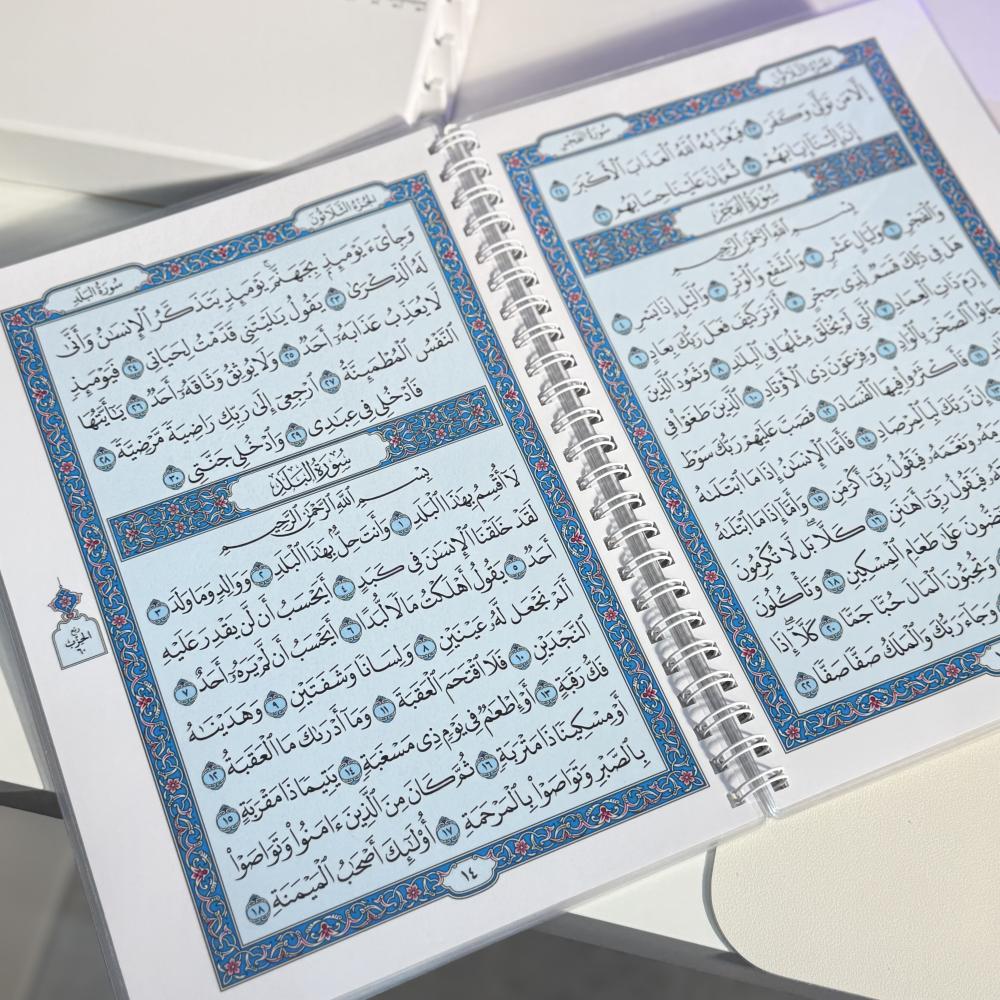 الجزء الثلاثون
سورة الفجر
إِلَّا مَن تَوَلَّىٰ وَكَفَرَ ٢٣ فَيُعَذِّبُهُ اللَّهُ الْعَذَابَ الْأَكْبَرَ ٢٤
إِنَّ إِلَيْنَا إِيَابَهُمْ ٢٥ ثُمَّ إِنَّ عَلَيْنَا حِسَابَهُم ٢٦
سُورَةُ الفَجْرِ
بِسْمِ اللَّهِ الرَّحْمَٰنِ الرَّحِيمِ
وَالْفَجْرِ ١ وَلَيَالٍ عَشْرٍ ٢ وَالشَّفْعِ وَالْوَتْرِ ٣ وَاللَّيْلِ إِذَا يَسْرِ ٤
هَلْ فِي ذَٰلِكَ قَسَمٌ لِّذِي حِجْرٍ ٥ أَلَمْ تَرَ كَيْفَ فَعَلَ رَبُّكَ بِعَادٍ ٦
إِرَمَ ذَاتِ الْعِمَادِ ٧ الَّتِي لَمْ يُخْلَقْ مِثْلُهَا فِي الْبِلَادِ ٨ وَثَمُودَ الَّذِينَ
جَابُوا الصَّخْرَ بِالْوَادِ ٩ وَفِرْعَوْنَ ذِي الْأَوْتَادِ ١٠ الَّذِينَ طَغَوْا فِي
١١ فَأَكْثَرُوا فِيهَا الْفَسَادَ ١٢ فَصَبَّ عَلَيْهِمْ رَبُّكَ سَوْطَ
إِنَّ رَبَّكَ لَبِالْمِرْصَادِ ١٤ فَأَمَّا الْإِنسَانُ إِذَا مَا ابْتَلَاهُ
وَنَعَّمَهُ فَيَقُولُ رَبِّي أَكْرَمَنِ ١٥ وَأَمَّا إِذَا مَا ابْتَلَاهُ
فَيَقُولُ رَبِّي أَهَانَنِ ١٦ كَلَّا بَل لَّا تُكْرِمُونَ
عَلَىٰ طَعَامِ الْمِسْكِينِ ١٨ وَتَأْكُلُونَ
وَتُحِبُّونَ الْمَالَ حُبًّا جَمًّا ٢٠ كَلَّا إِذَا
وَجَاءَ رَبُّكَ وَالْمَلَكُ صَفًّا صَفًّا ٢٢
الجزء الثلاثون
سورة البلد
وَجِايءَ يَوْمَئِذٍ بِجَهَنَّمَ يَوْمَئِذٍ يَتَذَكَّرُ الْإِنسَانُ وَأَنَّىٰ
لَهُ الذِّكْرَىٰ ٢٣ يَقُولُ يَا لَيْتَنِي قَدَّمْتُ لِحَيَاتِي ٢٤ فَيَوْمَئِذٍ
لَّا يُعَذِّبُ عَذَابَهُ أَحَدٌ ٢٥ وَلَا يُوثِقُ وَثَاقَهُ أَحَدٌ ٢٦ يَا أَيَّتُهَا
النَّفْسُ الْمُطْمَئِنَّةُ ٢٧ ارْجِعِي إِلَىٰ رَبِّكِ رَاضِيَةً مَّرْضِيَّةً ٢٨
فَادْخُلِي فِي عِبَادِي ٢٩ وَادْخُلِي جَنَّتِي ٣٠
سُورَةُ البَلَدِ
بِسْمِ اللَّهِ الرَّحْمَٰنِ الرَّحِيمِ
لَا أُقْسِمُ بِهَٰذَا الْبَلَدِ ١ وَأَنتَ حِلٌّ بِهَٰذَا الْبَلَدِ ٢ وَوَالِدٍ وَمَا وَلَدَ ٣
لَقَدْ خَلَقْنَا الْإِنسَانَ فِي كَبَدٍ ٤ أَيَحْسَبُ أَن لَّن يَقْدِرَ عَلَيْهِ
أَحَدٌ ٥ يَقُولُ أَهْلَكْتُ مَالًا لُّبَدًا ٦ أَيَحْسَبُ أَن لَّمْ يَرَهُ أَحَدٌ ٧
أَلَمْ نَجْعَل لَّهُ عَيْنَيْنِ ٨ وَلِسَانًا وَشَفَتَيْنِ ٩ وَهَدَيْنَاهُ
النَّجْدَيْنِ ١٠ فَلَا اقْتَحَمَ الْعَقَبَةَ ١١ وَمَا أَدْرَاكَ مَا الْعَقَبَةُ ١٢
فَكُّ رَقَبَةٍ ١٣ أَوْ إِطْعَامٌ فِي يَوْمٍ ذِي مَسْغَبَةٍ ١٤ يَتِيمًا ذَا مَقْرَبَةٍ ١٥
أَوْ مِسْكِينًا ذَا مَتْرَبَةٍ ١٦ ثُمَّ كَانَ مِنَ الَّذِينَ آمَنُوا وَتَوَاصَوْا
بِالصَّبْرِ وَتَوَاصَوْا بِالْمَرْحَمَةِ ١٧ أُولَٰئِكَ أَصْحَابُ الْمَيْمَنَةِ ١٨
ربع الحزب ٦٠
١٤